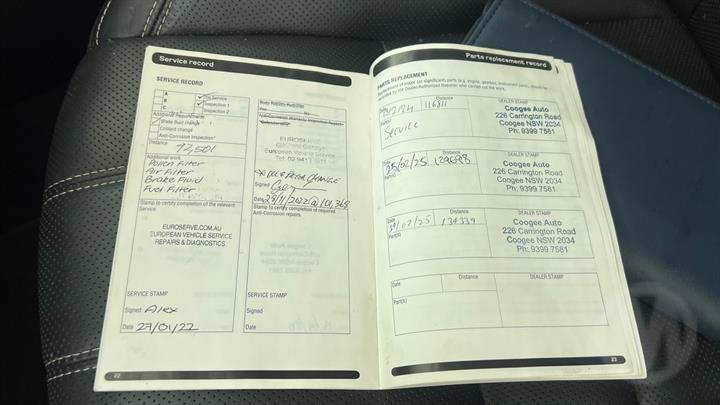 Service record
SERVICE RECORD
A
B
C
Oil Service
Inspection 1
Inspection 2
Additional Requirements
Brake fluid change
Coolant change
Anti-Corrosion Inspection*
Distance
92,501
Additional work
Pollen Filter
Air Filter
Brake Fluid
Fuel Filter
Stamp to certify completion of the relevant
Service
EUROSERVE.COM.AU
EUROPEAN VEHICLE SERVICE
REPAIRS & DIAGNOSTICS
SERVICE STAMP
Signed Alex
Date 27/01/22
Body Repairs Required
Yes No
European Vehicle Service
OIL & FILTER CHANGE
Signed
Date 28/11/2022 @ 101,368
Stamp to certify completion of required
Anti-Corrosion repairs.
SERVICE STAMP
Signed
Date
22
Parts replacement record
PARTS REPLACEMENT
Replacement of major (or significant) parts (e.g. engine, gearbox, instrument panel, should be
completed by the Dealer/Authorised Repairer who carried out the work.
Date Distance DEALER STAMP
116811
Part(s)
SERVICE
Coogee Auto
226 Carrington Road
Coogee NSW 2034
Ph: 9399 7581
Date Distance DEALER STAMP
25/02/25
Part(s)
Coogee Auto
226 Carrington Road
Coogee NSW 2034
Ph: 9399 7581
Date Distance DEALER STAMP
134339
Part(s)
Coogee Auto
226 Carrington Road
Coogee NSW 2034
Ph: 9399 7581
Date Distance DEALER STAMP
Part(s)
23